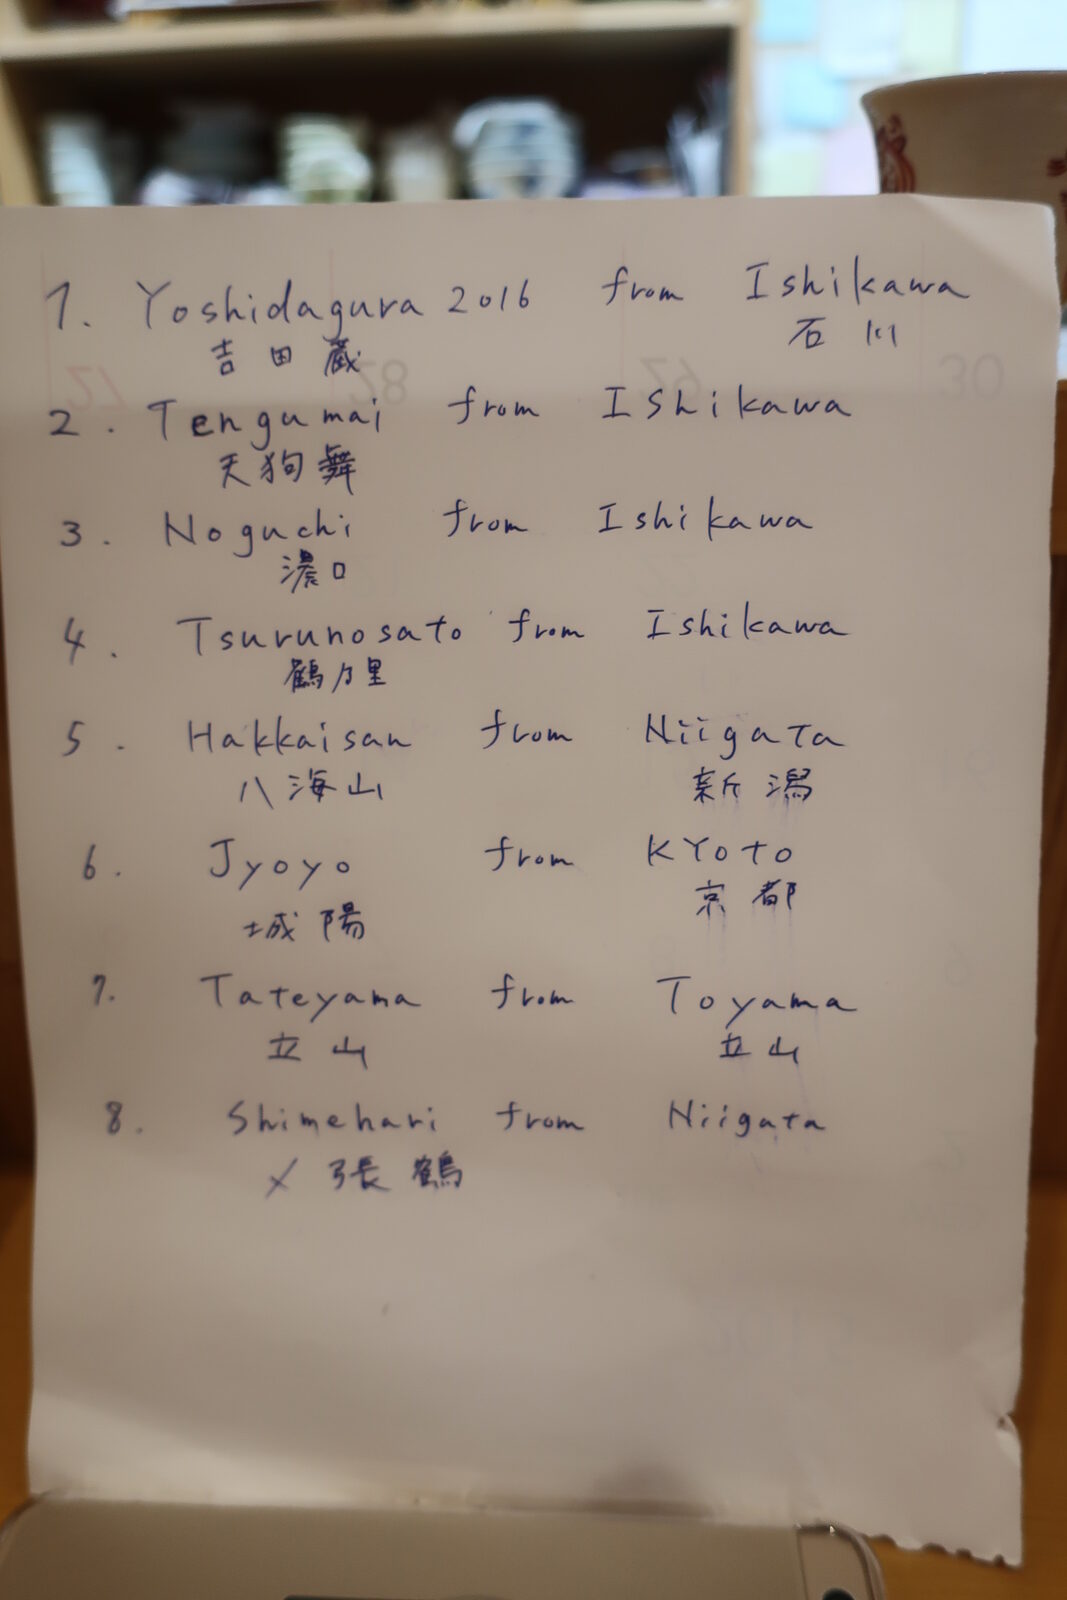 1. Yoshidagura 2016 from Ishikawa
吉田蔵 石川
2. Tengumai from Ishikawa
天狗舞
3. Noguchi from Ishikawa
濃口
4. Tsurunosato from Ishikawa
鶴乃里
5. Hakkaisan from Niigata
八海山 新潟
6. Jyoyo from Kyoto
城陽 京都
7. Tateyama from Toyama
立山 立山
8. Shimehari from Niigata
〆張鶴
30
28